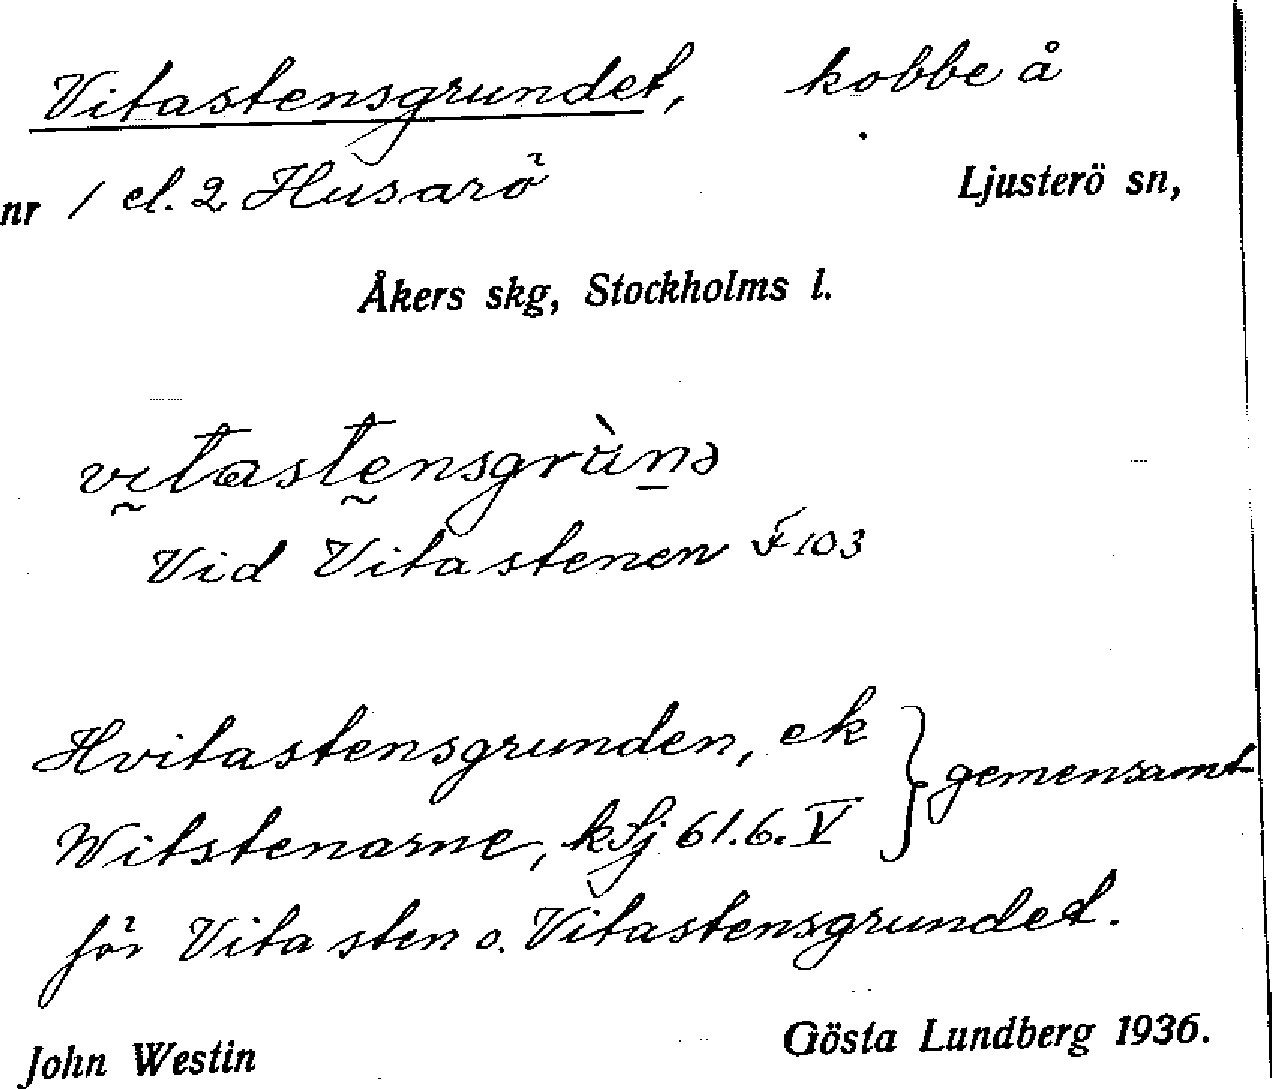 Vitastensgrundet, kobbe å
nr 1 el. 2 Husarö Ljusterö sn,
Åkers skg, Stockholms l.
vḭtastḛnsgrùṉə
Vid Vitastenen F 103
Hvitastensgrunden, ek } gemensamt
Witstenarne, kSj 61.6.V
för Vitasten o. Vitastensgrundet.
John Westin Gösta Lundberg 1936.